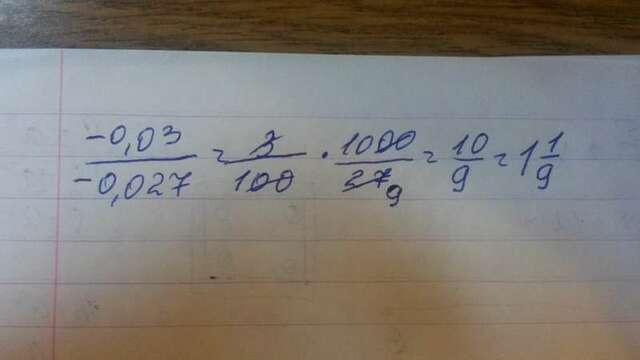 -0,03/-0,027 = 3/100 · 1000/27 9 = 10/9 = 1 1/9